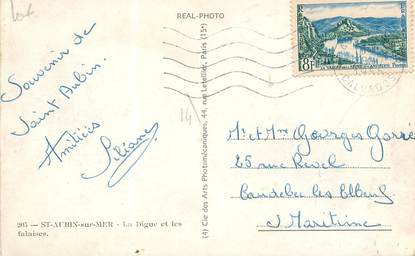 REAL-PHOTO
Souvenir de
Saint Aubin.
Amitiés
Liliane
205 — ST-AUBIN-sur-MER - La Digue et les
falaises.
(4) Cie des Arts Photomécaniques, 44, rue Letellier, Paris (15e)
14
8F
CALVADOS
Mr et Mme Georges
25 rue Revel
Caudebec les Elbeuf
S. Maritime